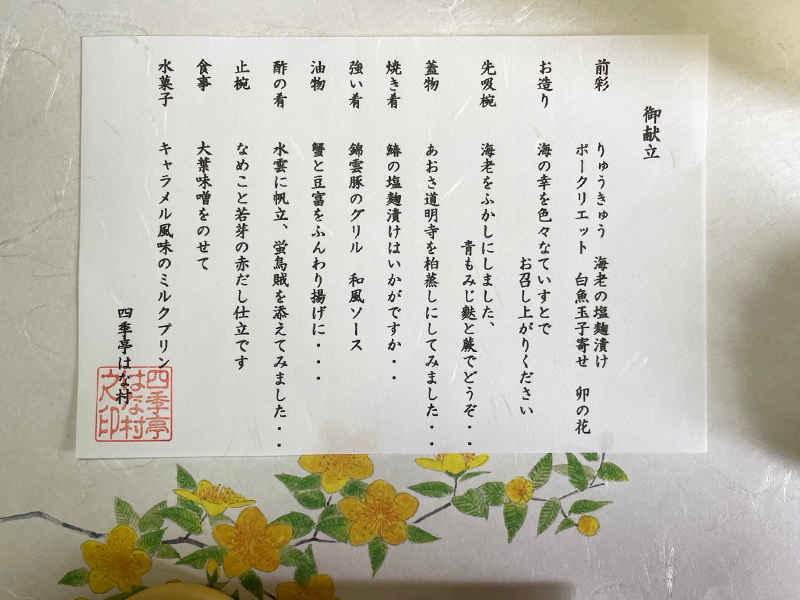 御献立
前彩 りゅうきゅう 海老の塩麹漬け
ポークリエット 白魚玉子寄せ 卯の花
お造り 海の幸を色々なていすとで
お召し上がりください
先吸椀 海老をふかしにしました、
青もみじ麩と蕨でどうぞ・・
蓋物 あおさ道明寺を柏蒸しにしてみました・・
焼き肴 鰆の塩麹漬けはいかがですか・・
強い肴 錦雲豚のグリル 和風ソース
油物 蟹と豆富をふんわり揚げに・・・
酢の肴 水雲に帆立、蛍烏賊を添えてみました・・
止椀 なめこと若芽の赤だし仕立です
食事 大葉味噌をのせて
水菓子 キャラメル風味のミルクプリン
四季亭はな村
四季亭
はな村
之印